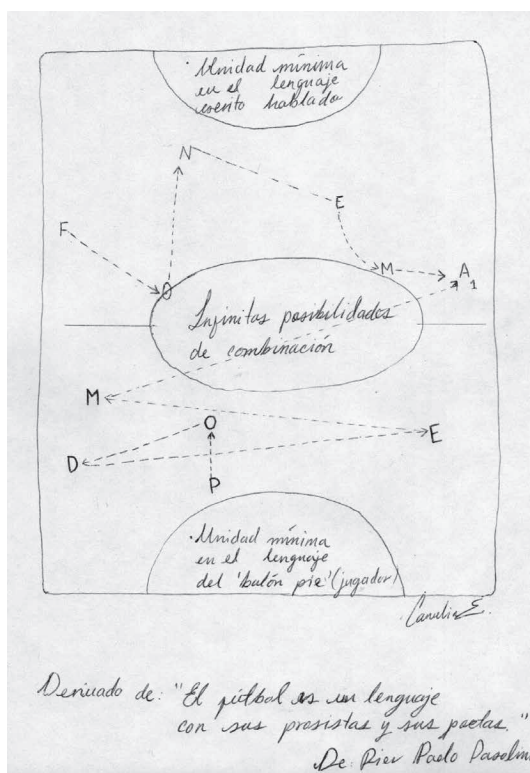 · Unidad mínima
en el lenguaje
escrito hablado
N
E
F
O
M
A
1
Infinitas posibilidades
de combinación
M
O
E
D
P
· Unidad mínima
en el lenguaje
del 'balón pie' (jugador)
Derivado de: "El fútbol es un lenguaje
con sus prosistas y sus poetas."
De: Pier Paolo Pasolin